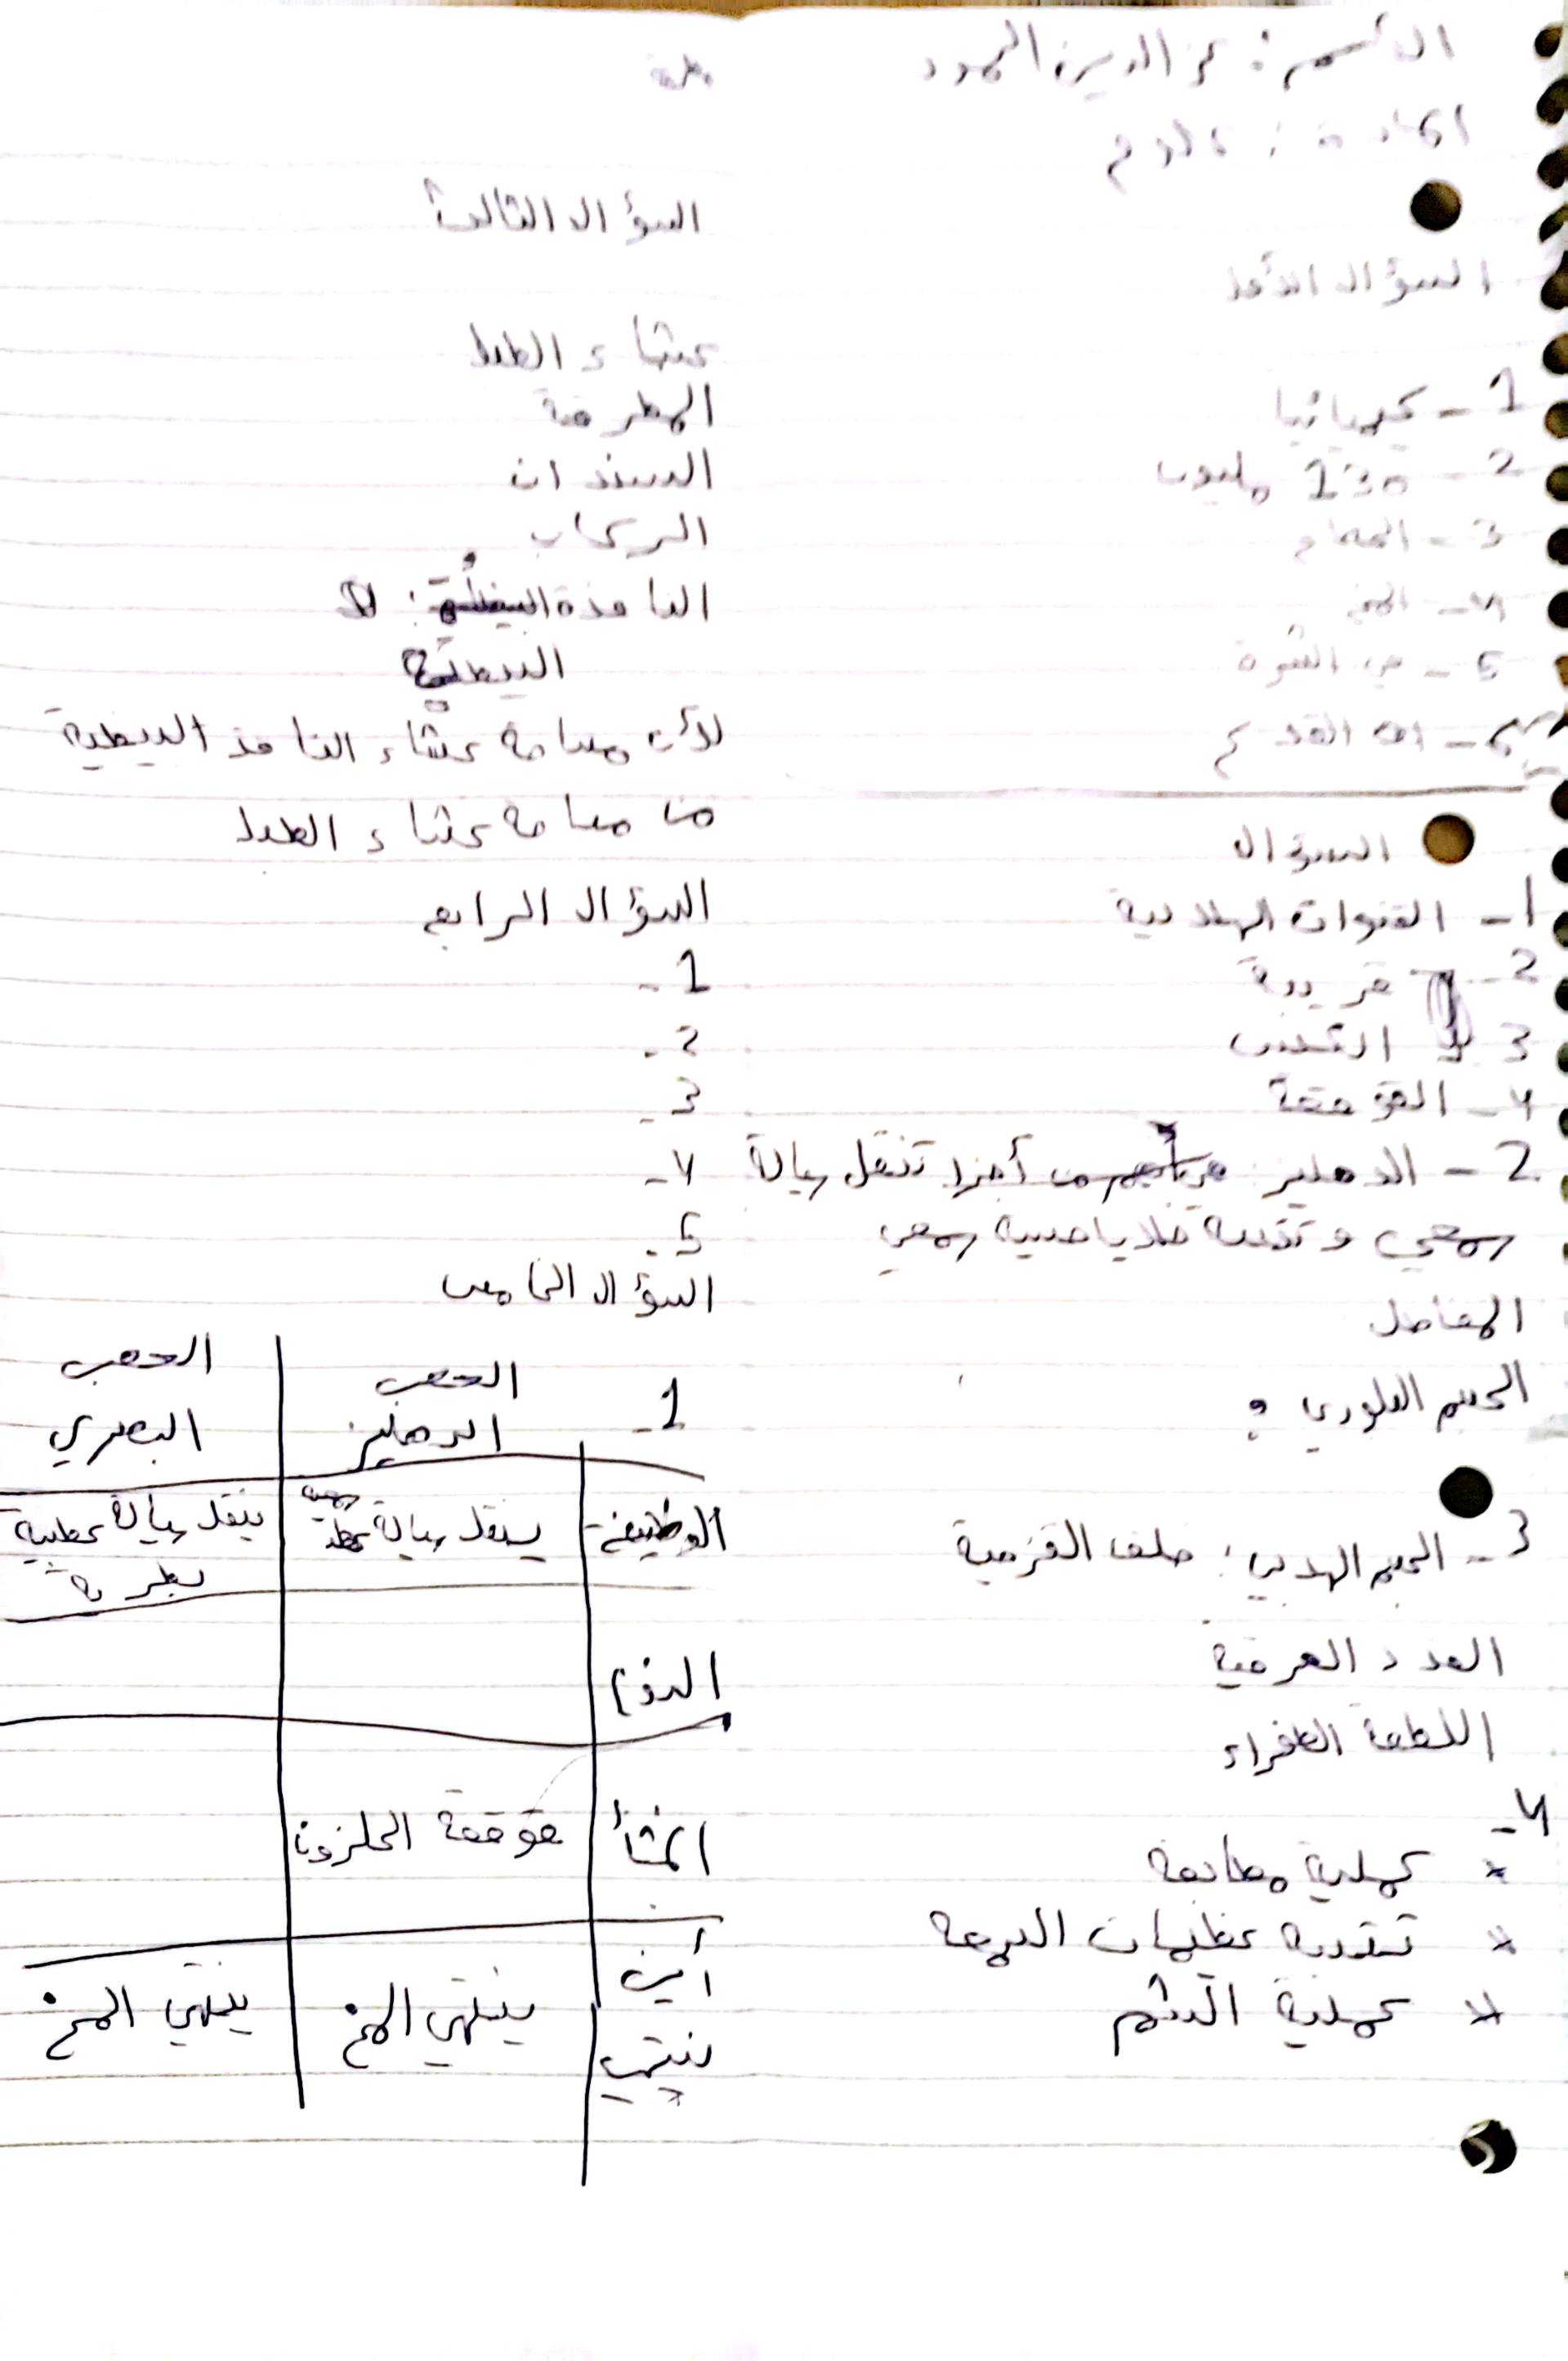 الأسم : عز الدين الحمود
المادة : علوم
السؤال الأول
1 - كيميائيا
2 - 130 مليون
3 -
4 - المخ
5 - في الشوة
السؤال
1 - القنوات الهلالية
2 - قريبة
3 -
4 - القوقعة
2 - الدهليز : أجزا تنقل سيالة
سمعي و خلايا حسية سمعي
المفاصل
الجسم البلوري :
3 - الجسم الهدبي : خلف القزحية
الغدد العرقية
اللطخة الصفراء
4 -
* عملية مطابقة
* عظيمات السمعة
* عملية الشم
السؤال الثالث
غشاء الطبل
المطرقة
السندان
الركاب
النافذة البيضية :
البيضية
لأن مساحة غشاء النافذ البيضية
من مساحة غشاء الطبل
السؤال الرابع
1 -
2 -
3 -
4 -
5 -
السؤال الخامس
1 - العصب الدهليز العصب البصري
الوظيفة ينقل سيالة ينقل سيالة عصبية بصرية
النوع
المنشأ قوقعة الحلزون
أين ينتهي ينتهي المخ ينتهي المخ